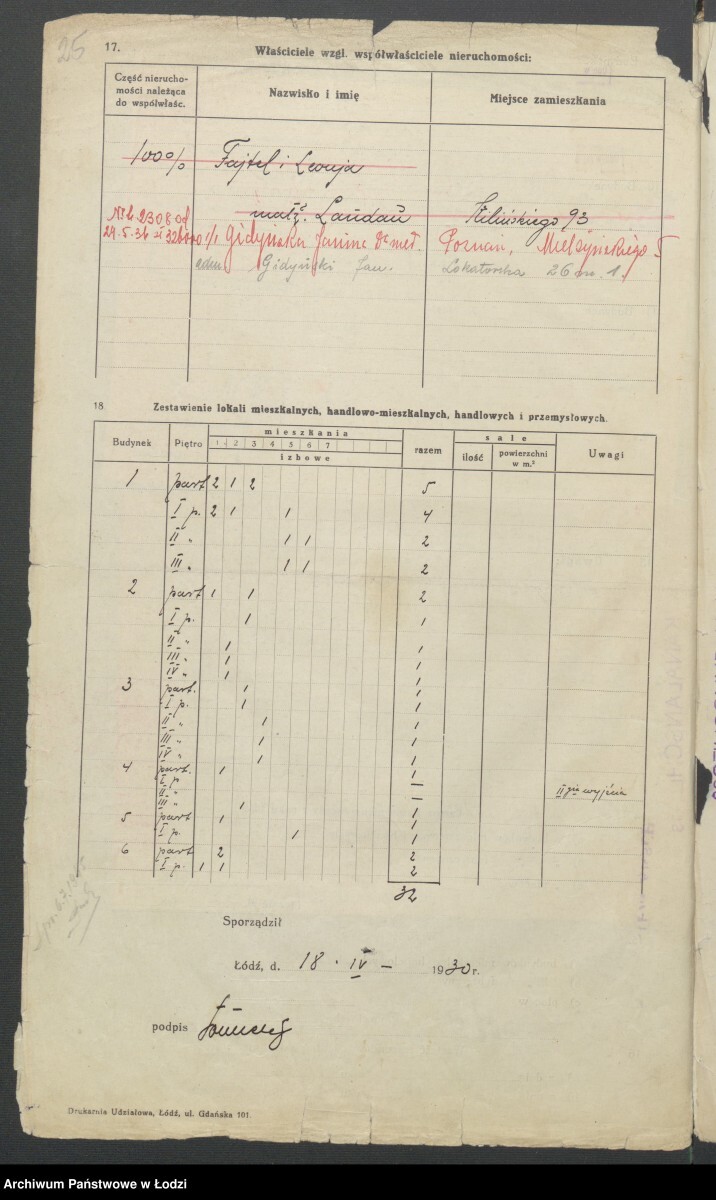 25
17.
Właściciele wzgl. współwłaściciele nieruchomości:
Część nierucho-
mości należąca
do współwłaśc.
Nazwisko i imię
Miejsce zamieszkania
100% Fajtel i Leonja
małż. Landau Kilińskiego 93
29.5.31 Gidyńska Janina Dr med. Poznań, Mielżyńskiego 5
adm. Gidyński Jan. Lokatorska 26 m. 1.
18.
Zestawienie lokali mieszkalnych, handlowo-mieszkalnych, handlowych i przemysłowych.
Budynek Piętro mieszkania razem sale Uwagi
1 2 3 4 5 6 7
izbowe
ilość powierzchni
w m.²
1 part 2 1 2 5
I p. 2 1 1 4
II " 1 1 2
III " 1 1 2
2 part 1 1 2
I p. 1 1
II " 1 1
III " 1 1
IV " 1 1
3 part. 1 1
I p. 1 1
II " 1 1
III " 1 1
IV " 1 1
4 part. 1 1
I p. —
II " — wyjścia
III " 1 1
5 part 1 1
I p. 1 1
6 part 2 2
I p. 1 1 2
32
Sporządził
Łódź, d. 18 . IV — 1930 r.
podpis
Drukarnia Udziałowa, Łódź, ul. Gdańska 101.
Archiwum Państwowe w Łodzi